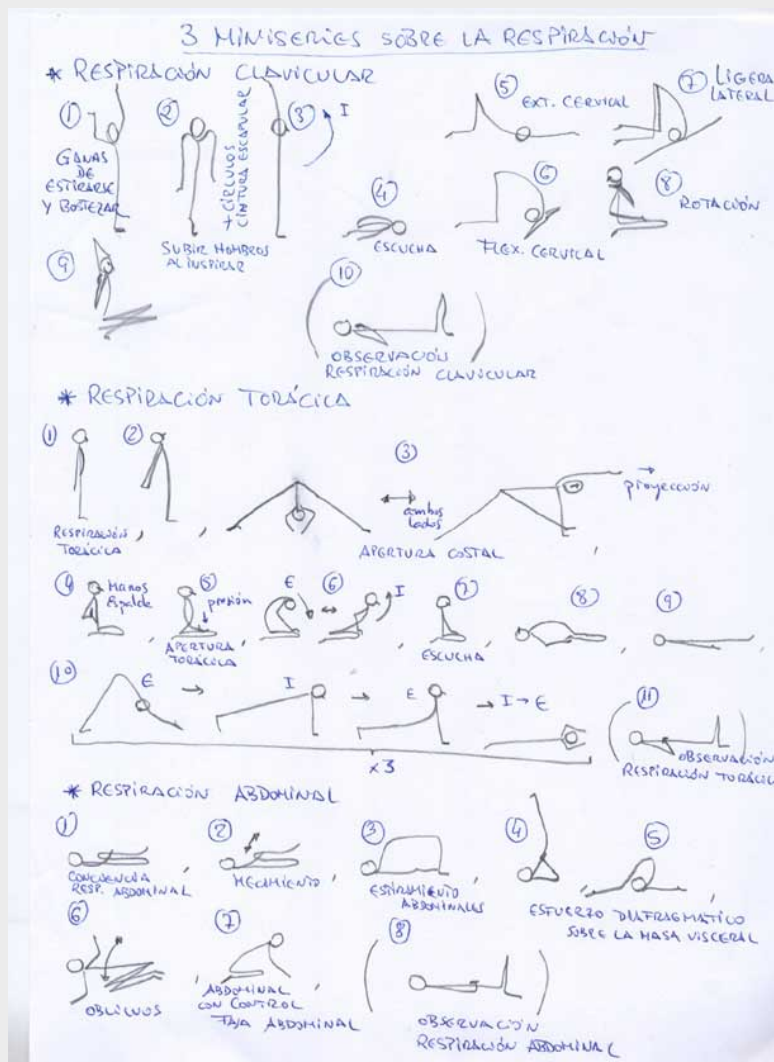 3 MINISERIES SOBRE LA RESPIRACIÓN
* RESPIRACIÓN CLAVICULAR
①
GANAS
DE
ESTIRARSE
Y BOSTEZAR
②
SUBIR HOMBROS
AL INSPIRAR
+ CÍRCULOS
CINTURA ESCAPULAR
③
I
④
ESCUCHA
⑤
EXT. CERVICAL
⑥
FLEX. CERVICAL
⑦ LIGERA
LATERAL
⑧
ROTACIÓN
⑨
⑩
OBSERVACIÓN
RESPIRACIÓN CLAVICULAR
* RESPIRACIÓN TORÁCICA
①
RESPIRACIÓN
TORÁCICA
②
③
ambos
lados
proyección
APERTURA COSTAL
④ Manos
espalda
⑤
presión
APERTURA
TORÁCICA
E ⑥ I
⑦
ESCUCHA
⑧
⑨
⑩
E → I → E → I → E
x3
⑪
OBSERVACIÓN
RESPIRACIÓN TORÁCICA
* RESPIRACIÓN ABDOMINAL
①
CONCIENCIA
RESP. ABDOMINAL
②
MECIMIENTO
③
ESTIRAMIENTO
ABDOMINALES
④
⑤
ESFUERZO DIAFRAGMÁTICO
SOBRE LA MASA VISCERAL
⑥
OBLICUOS
⑦
ABDOMINAL
CON CONTROL
FAJA ABDOMINAL
⑧
OBSERVACIÓN
RESPIRACIÓN ABDOMINAL